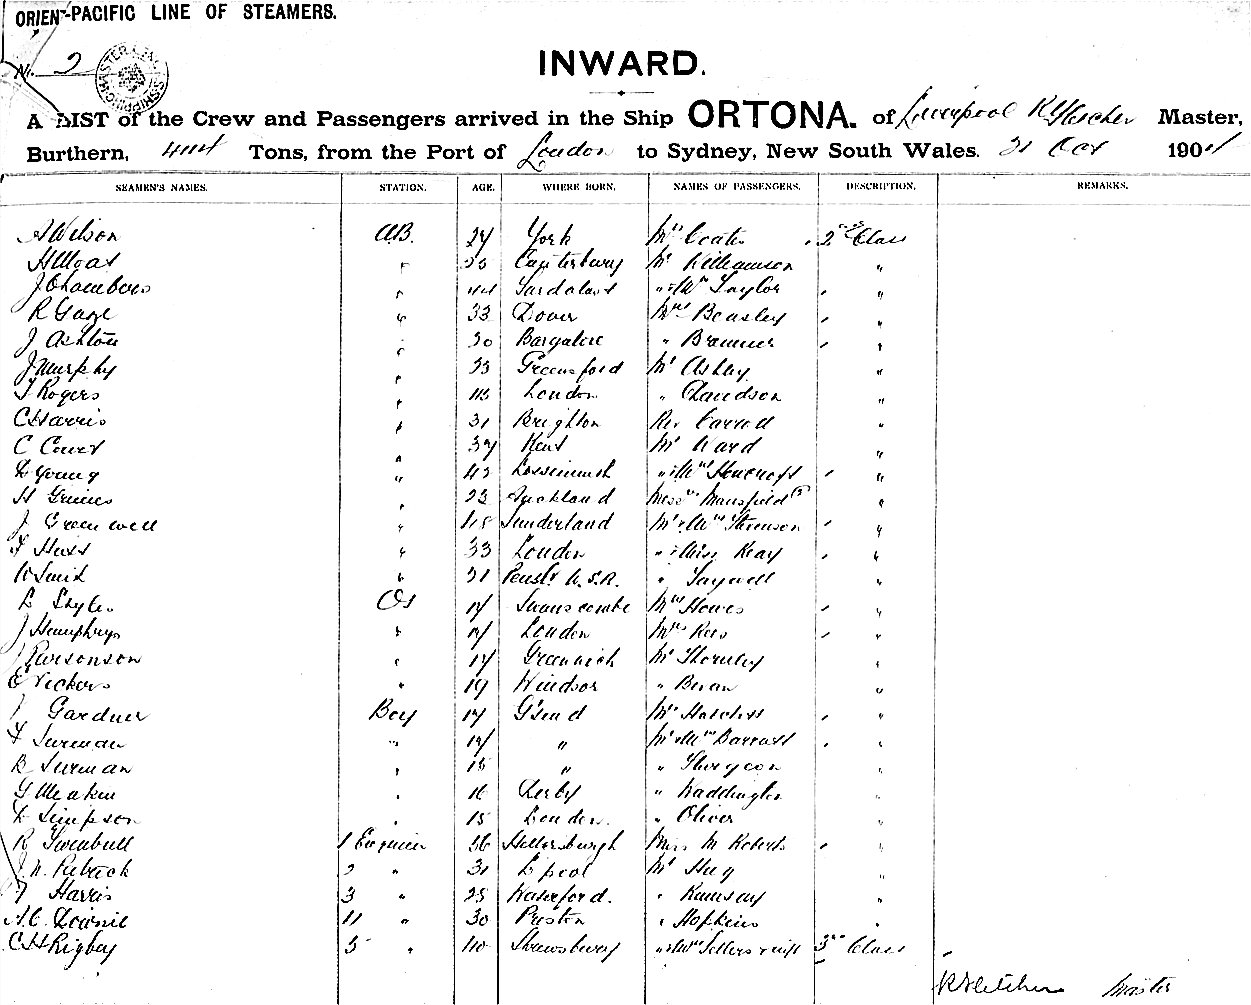 ORIENT-PACIFIC LINE OF STEAMERS.
No. 2
INWARD.
A LIST of the Crew and Passengers arrived in the Ship ORTONA. of Liverpool R. Fletcher Master,
Burthern, Tons, from the Port of London to Sydney, New South Wales. 31 Oct 190
SEAMEN'S NAMES. STATION. AGE. WHERE BORN, NAMES OF PASSENGERS. DESCRIPTION, REMARKS.
A Wilson A.B. 24 York Mrs Coates 2nd Class
H Moat " Canterbury Mr Williamson "
J Chambers " 44 " & Mrs Taylor "
R Gage " 33 Dover Mrs Beasley "
J Ashton " 30 Bangalore " "
J Murphy " 23 Greensford Mr Ashby "
T Rogers " 45 London " "
C Harris " 31 Brighton Rev Carrod "
C Court " 37 Kent Mr Ward "
Young " 42 " & Mrs "
H Grimes " 23 Auckland Messrs Mansfield (2) "
J Greenwell " 48 Sunderland Mr & Mrs Stevenson "
F Huss " 33 London " & Miss Keay "
" 21 U.S.A. " Taywell "
OS 17 Swanscombe Mrs Howes "
J Humphrys " 17 London Mrs Rees "
J Parsonson " 17 Greenwich Mr Thornley "
E Vickers " 19 Windsor " Bevan "
J Gardner Boy 17 G'send Mrs "
F Surman " 17 " Mr & Mrs Barratt "
B Surman " 15 " " "
G Meakin " 16 Derby " Waddington "
Simpson " 15 London. " Oliver "
R Turnbull 1 Engineer 36 Miss M Roberts "
J. N. 2 " 31 L'pool Mr "
Harris 3 " 28 Waterford. " Ramsay "
A. C. Downie 4 " 30 Preston " Hopkins "
C H Rigby 5 " 40 Shrewsbury " & Mrs Sellers & inft 3rd Class
R Fletcher Master